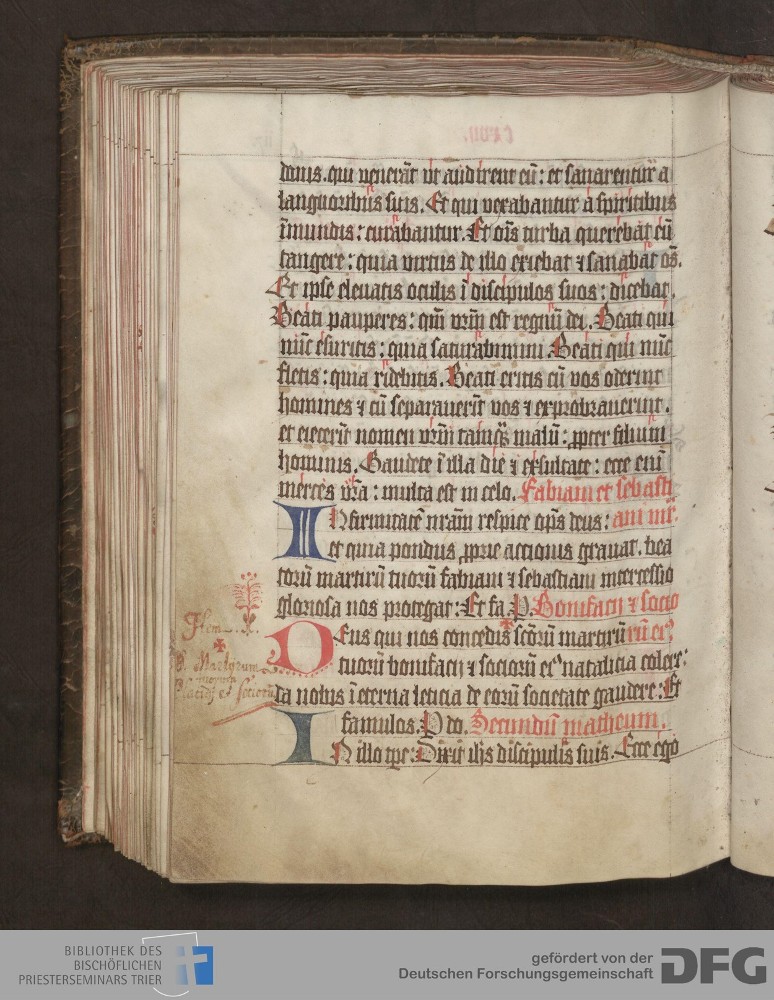 donis. qui venerāt ut audirent eū: et sanarentur a
languoribus suis. Et qui vexabantur a spiritibus
īmundis: curabantur. Et oīs turba querebāt eū
tangere: quia virtus de illo exiebat ⁊ sanabat oēs.
Et ipse elevatis oculis ī discipulos suos: dicebat.
Beati pauperes: qm̄ vr̄m est regnū dei. Beati qui
nūc esuritis: quia saturabimini. Beati qui nūc
fletis: quia ridebitis. Beati eritis cū vos oderint
homines ⁊ cū separaverīt vos ⁊ exprobraverint.
et eiecerīt nomen vr̄m tamqꝫ malū: ꝓpter filium
hominis. Gaudete ī illa die ⁊ exsultate: ecce enī
merces vr̄a: multa est in celo. Fabiani et sebasti
INfirmitatē nr̄am respice op̄s deus: ani mr̄.
et quia pondus ꝓprie actionis gravat. bea
torū martirū tuorū fabiani ⁊ sebastiani intercessio
gloriosa nos protegat: Et fa. P. Bonifacii ⁊ socio
DEus qui nos concedis sc̄orū martirū rū eiꝰ
tuorū bonifacii ⁊ sociorū eiꝰ natalicia colere:
Item
S. Martyrum
Placidj et sociorū
da nobis ī eterna leticia de eorū societate gaudere: Et
famulos. P do. Secundū matheum.
IN illo tp̄e: Dixit ih̄s discipulis suis. Ecce ego
BIBLIOTHEK DES
BISCHÖFLICHEN
PRIESTERSEMINARS TRIER
gefördert von der
Deutschen Forschungsgemeinschaft DFG